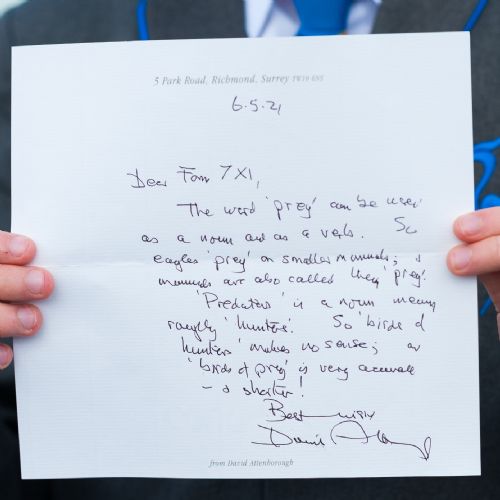 5 Park Road, Richmond, Surrey TW10 6NS
6.5.21
Dear Form 7XI,
The word 'prey' can be used
as a noun and as a verb. So
eagles 'prey' on smaller mammals; &
mammals are also called their 'prey'.
'Predators' is a noun meaning
roughly 'hunters'. So 'birds of
hunters' makes no sense;
'birds of prey' is very accurate
- & shorter!
Best wishes
David Attenborough
from David Attenborough